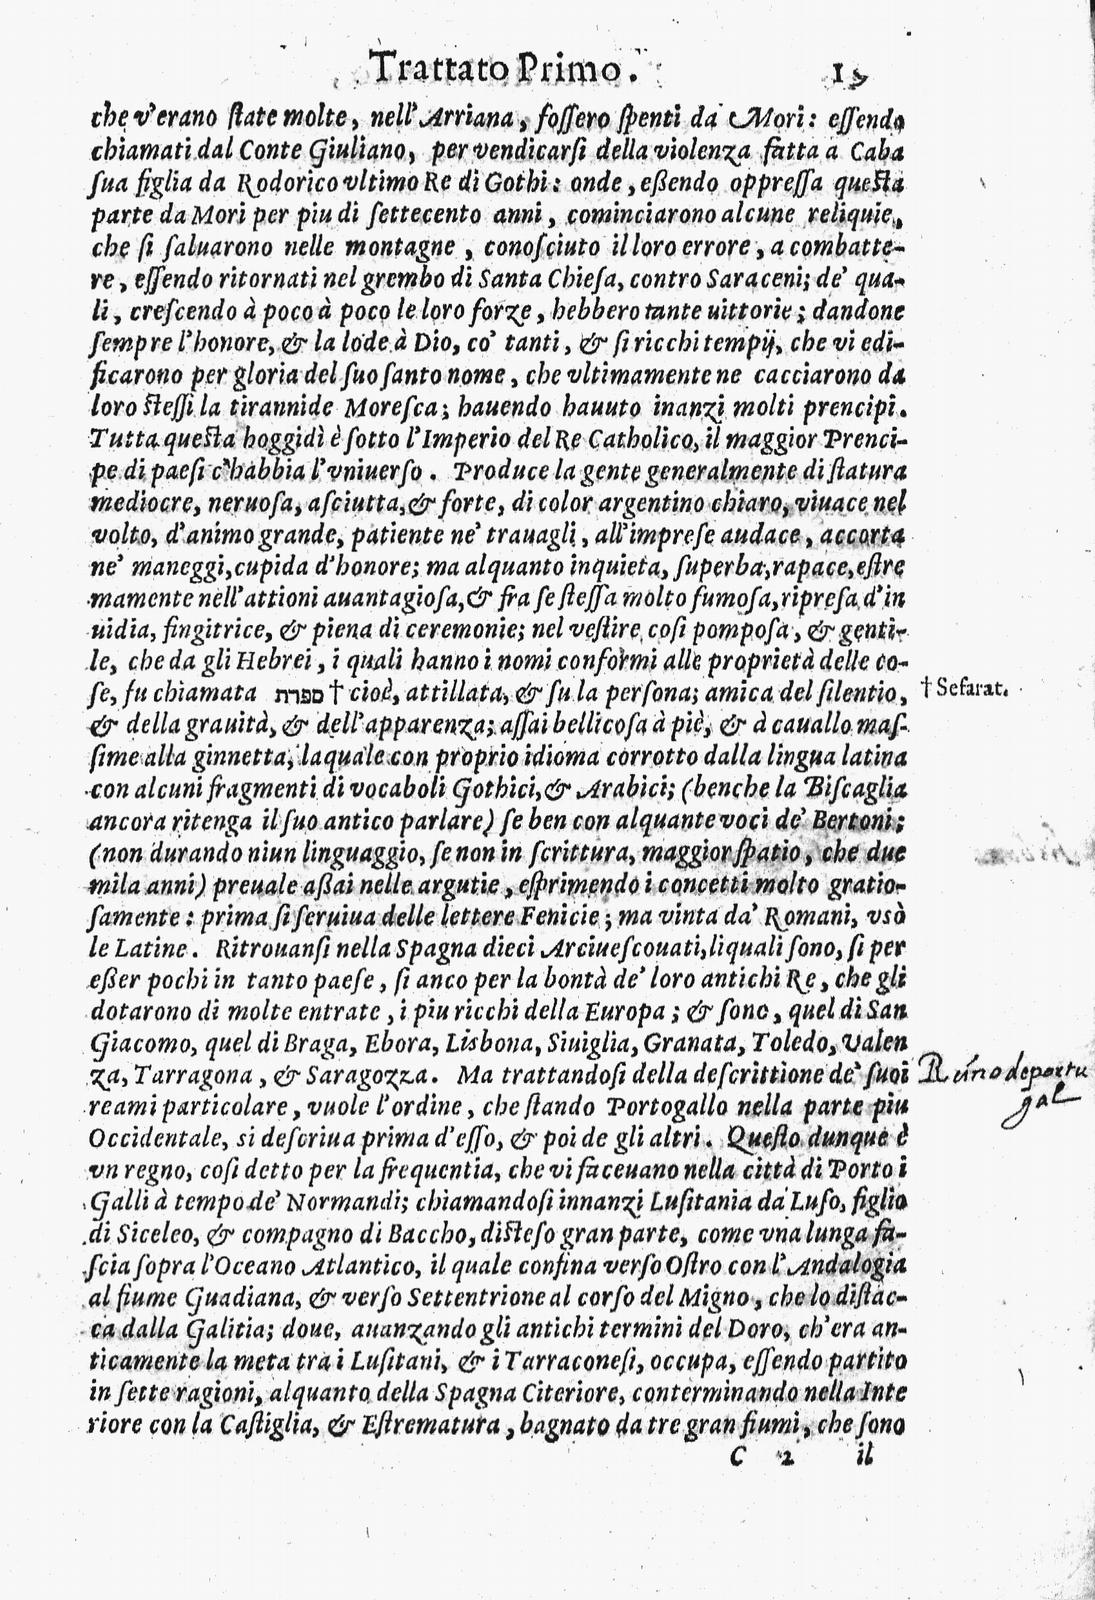 Trattato Primo. 19
che v'erano ſtate molte, nell'Arriana, foſſero ſpenti da Mori: eſſendo
chiamati dal Conte Giuliano, per vendicarſi della violenza fatta a Caba
ſua figlia da Rodorico vltimo Re di Gothi: onde, eßendo oppreſſa queſta
parte da Mori per piu di ſettecento anni, cominciarono alcune reliquie,
che ſi ſaluarono nelle montagne, conoſciuto il loro errore, a combatte-
re, eſſendo ritornati nel grembo di Santa Chieſa, contro Saraceni; de' qua-
li, creſcendo à poco à poco le loro forze, hebbero tante uittorie; dandone
ſempre l'honore, & la lode à Dio, co' tanti, & ſi ricchi tempij, che vi edi-
ficarono per gloria del ſuo ſanto nome, che vltimamente ne cacciarono da
loro ſteſſi la tirannide Moreſca; hauendo hauuto inanzi molti prencipi.
Tutta queſta hoggidì è ſotto l'Imperio del Re Catholico, il maggior Prenci-
pe di paeſi c'habbia l'vniuerſo. Produce la gente generalmente di ſtatura
mediocre, neruoſa, aſciutta, & forte, di color argentino chiaro, viuace nel
volto, d'animo grande, patiente ne' trauagli, all'impreſe audace, accorta
ne' maneggi, cupida d'honore; ma alquanto inquieta, ſuperba, rapace, eſtre
mamente nell'attioni auantagioſa, & fra ſe ſteſſa molto fumoſa, ripreſa d'in
uidia, fingitrice, & piena di ceremonie; nel veſtire coſi pompoſa, & genti-
le, che da gli Hebrei, i quali hanno i nomi conformi alle proprietà delle co-
ſe, fu chiamata ספרת † cioè, attillata, & ſu la perſona; amica del ſilentio,
† Sefarat.
& della grauità, & dell'apparenza; aſſai bellicoſa à piè, & à cauallo maſ-
ſime alla ginnetta, laquale con proprio idioma corrotto dalla lingua latina
con alcuni fragmenti di vocaboli Gothici, & Arabici; (benche la Biſcaglia
ancora ritenga il ſuo antico parlare) ſe ben con alquante voci de' Bertoni;
(non durando niun linguaggio, ſe non in ſcrittura, maggior ſpatio, che due
mila anni) preuale aßai nelle argutie, eſprimendo i concetti molto gratio-
ſamente: prima ſi ſeruiua delle lettere Fenicie; ma vinta da' Romani, vsò
le Latine. Ritrouanſi nella Spagna dieci Arciueſcouati, liquali ſono, ſi per
eßer pochi in tanto paeſe, ſi anco per la bontà de' loro antichi Re, che gli
dotarono di molte entrate, i piu ricchi della Europa; & ſono, quel di San
Giacomo, quel di Braga, Ebora, Lisbona, Siuiglia, Granata, Toledo, Valen
za, Tarragona, & Saragozza. Ma trattandoſi della deſcrittione de' ſuoi
Reino de portu
gal
reami particolare, vuole l'ordine, che ſtando Portogallo nella parte piu
Occidentale, si deſcriua prima d'eſſo, & poi de gli altri. Queſto dunque è
vn regno, coſi detto per la frequentia, che vi faceuano nella città di Porto i
Galli à tempo de' Normandi; chiamandoſi innanzi Luſitania da Luſo, figlio
di Siceleo, & compagno di Baccho, diſteſo gran parte, come vna lunga fa-
ſcia ſopra l'Oceano Atlantico, il quale confina verſo Oſtro con l'Andalogia
al fiume Guadiana, & verſo Settentrione al corſo del Migno, che lo diſtac-
ca dalla Galitia; doue, auanzando gli antichi termini del Doro, ch'era an-
ticamente la meta tra i Luſitani, & i Tarraconeſi, occupa, eſſendo partito
in ſette ragioni, alquanto della Spagna Citeriore, conterminando nella Inte
riore con la Caſtiglia, & Eſtrematura, bagnato da tre gran fiumi, che ſono
C 2 il